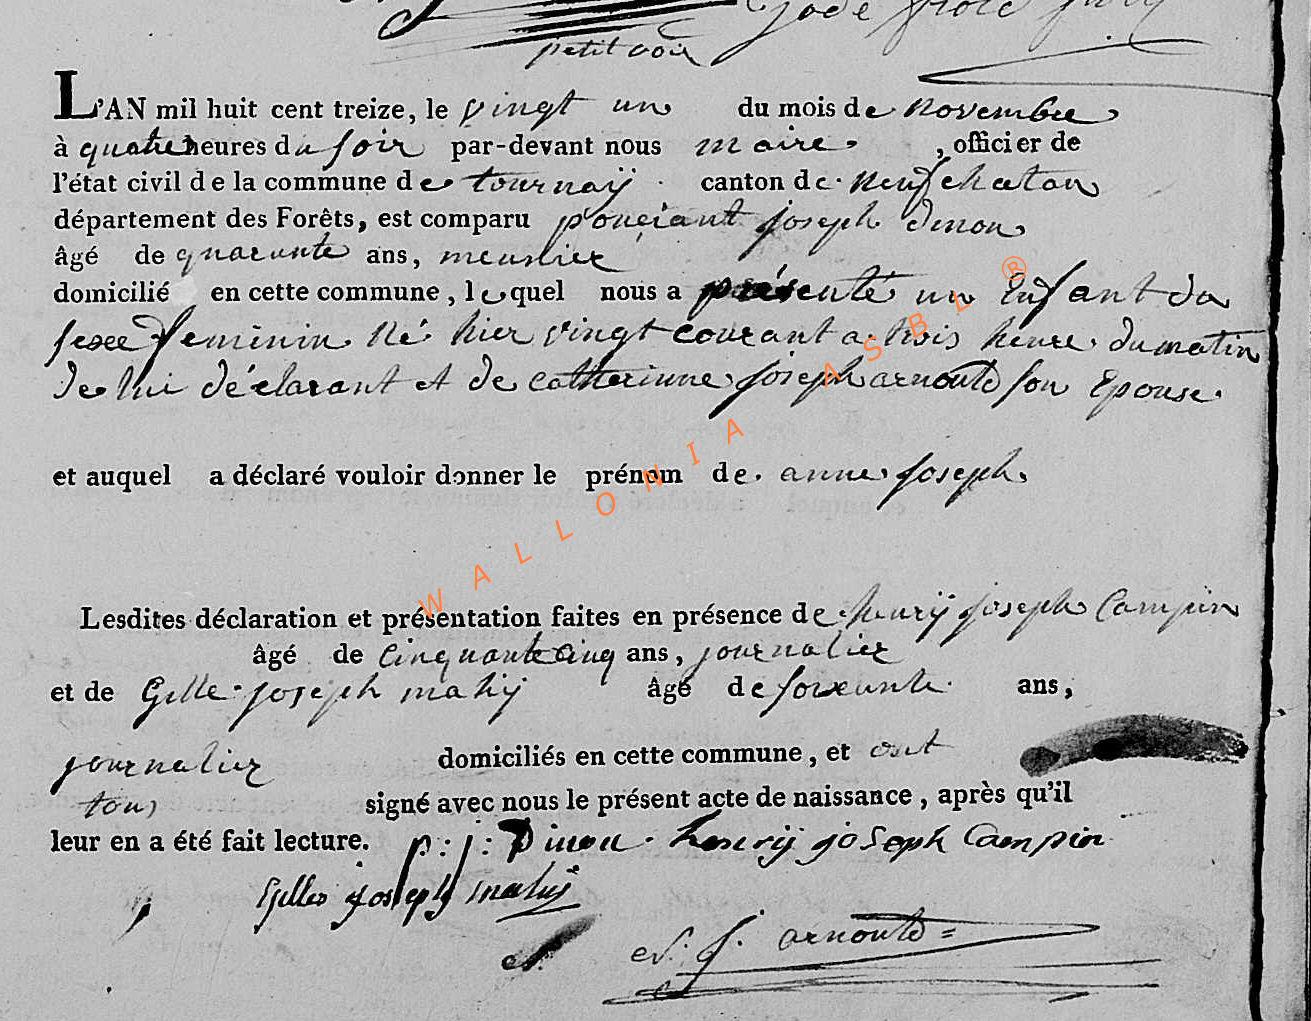 petit voir
L'AN mil huit cent treize, le vingt un du mois de novembre
à quatre heures du soir par-devant nous maire, officier de
l'état civil de la commune de tournaÿ canton de neufchatau
département des Forêts, est comparu ponçiant joseph dinon
âgé de quarante ans, meunier
domicilié en cette commune, lequel nous a présenté un Enfant du
sexee feminin Né hier vingt courant a trois heure du matin
de lui déclarant et de catherinne joseph arnould son Epouse
et auquel a déclaré vouloir donner le prénom de anne joseph
Lesdites déclaration et présentation faites en présence de henrÿ joseph Campin
âgé de cinquante cinq ans, journalier
et de Gille joseph mahÿ âgé de soixante ans,
journalier domiciliés en cette commune, et ont
tous signé avec nous le présent acte de naissance, après qu'il
leur en a été fait lecture. p: j: Dinon henrÿ joseph Campin
Gilles joseph mahÿ
j. arnould
WALLONIA ASBL ®